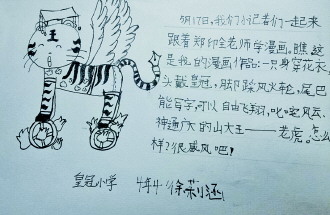 5月17日,我们小记者们一起来
跟着郑印全老师学漫画。瞧这
是我的漫画作品:一只身穿花衣
头戴皇冠,脚踩风火轮,尾巴
能写字,可以自由飞翔,叱咤风云、
神通广大的山大王——老虎。怎么
样?很威风吧!
皇冠小学 4年4. 徐莉涵